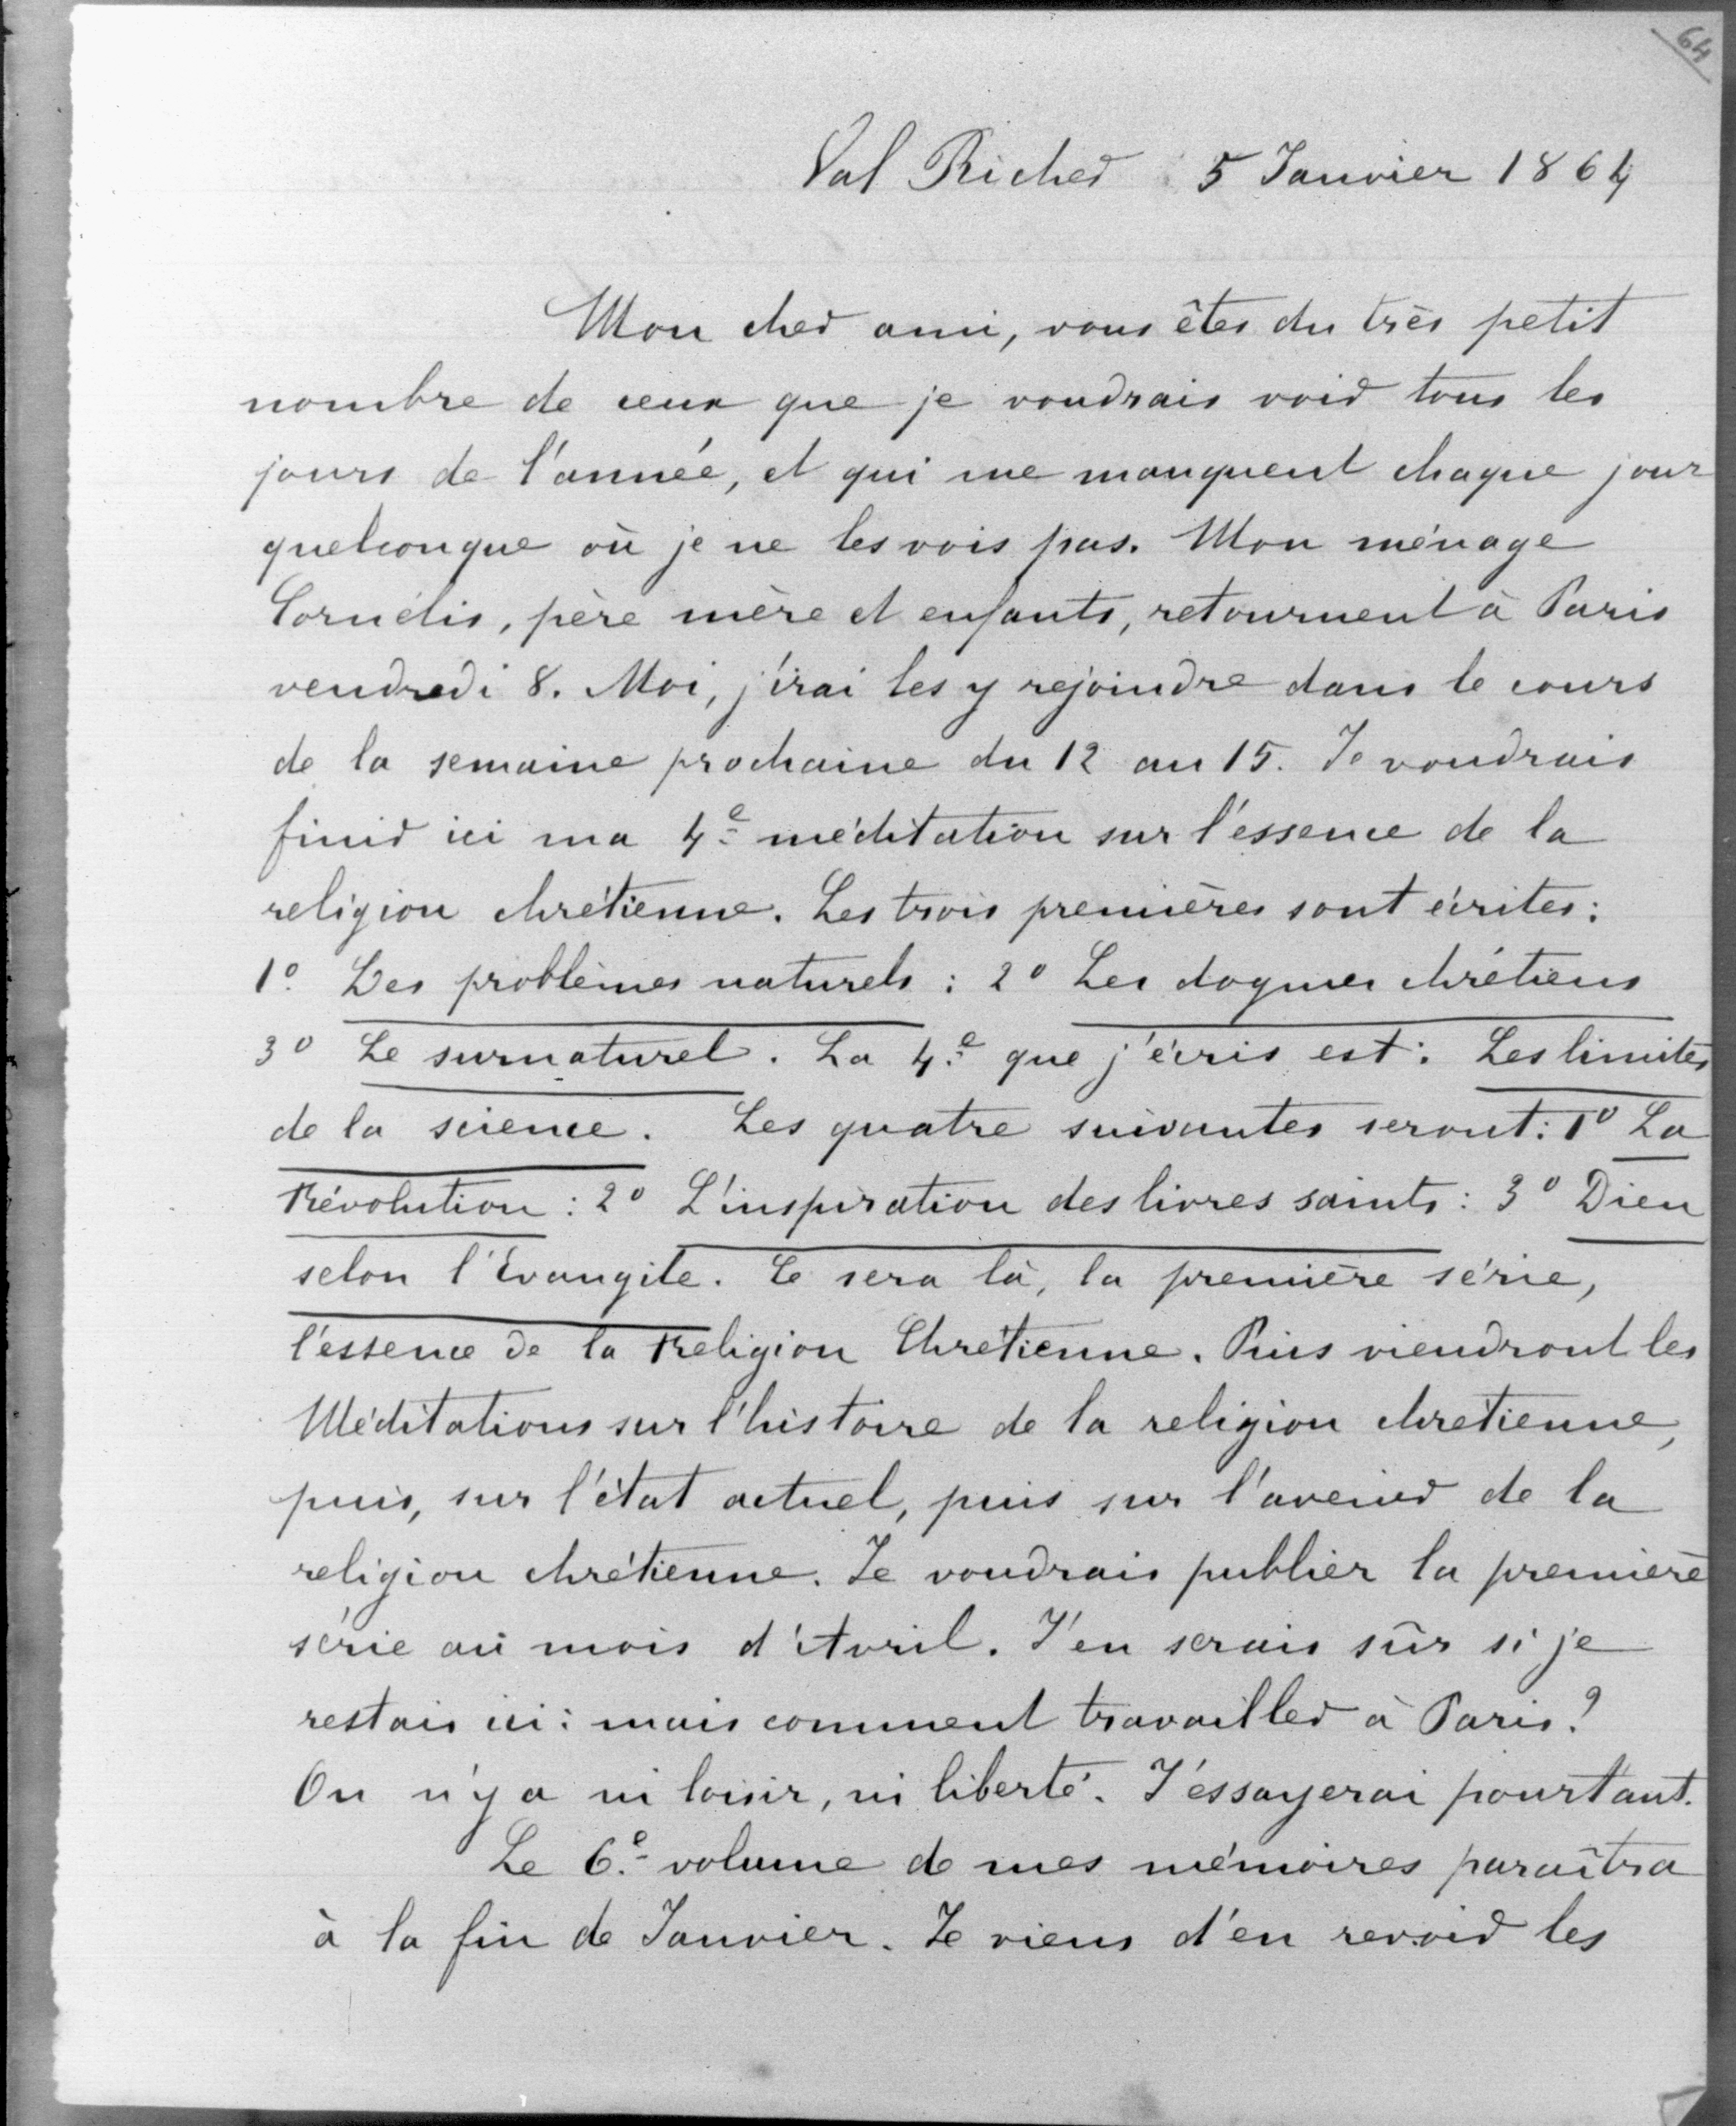 64
Val Richer 5 Janvier 1864
Mon cher ami, vous êtes du très petit
nombre de ceux que je voudrais voir tous les
jours de l'année, et qui me manquent chaque jour
quelconque où je ne les vois pas. Mon ménage
Cornélis, père mère et enfants, retournent à Paris
vendredi 8. Moi, j'irai les y rejoindre dans le cours
de la semaine prochaine du 12 au 15. Je voudrais
finir ici ma 4e méditation sur l'éssence de la
religion chrétienne. Les trois premières sont écrites:
1o Les problèmes naturels : 2o Les dogmes chrétiens
3o Le surnaturel. La 4e que j'écris est: Les limites
de la science. Les quatre suivantes seront: 1o La
Révolution : 2o L'inspiration des livres saints : 3o Dieu
selon l'Evangile. Ce sera là, la première série,
l'éssence de la Religion Chrétienne. Puis viendront les
Méditations sur l'histoire de la religion chretienne,
puis, sur l'état actuel, puis sur l'avenir de la
religion chrétienne. Je voudrais publier la première
série au mois d'Avril. J'en serais sûr si je
restais ici : mais comment travailler à Paris?
On n'y a ni loisir, ni liberté. J'éssayerai pourtant.
Le 6e volume de mes mémoires paraîtra
à la fin de Janvier. Je viens d'en revoir les